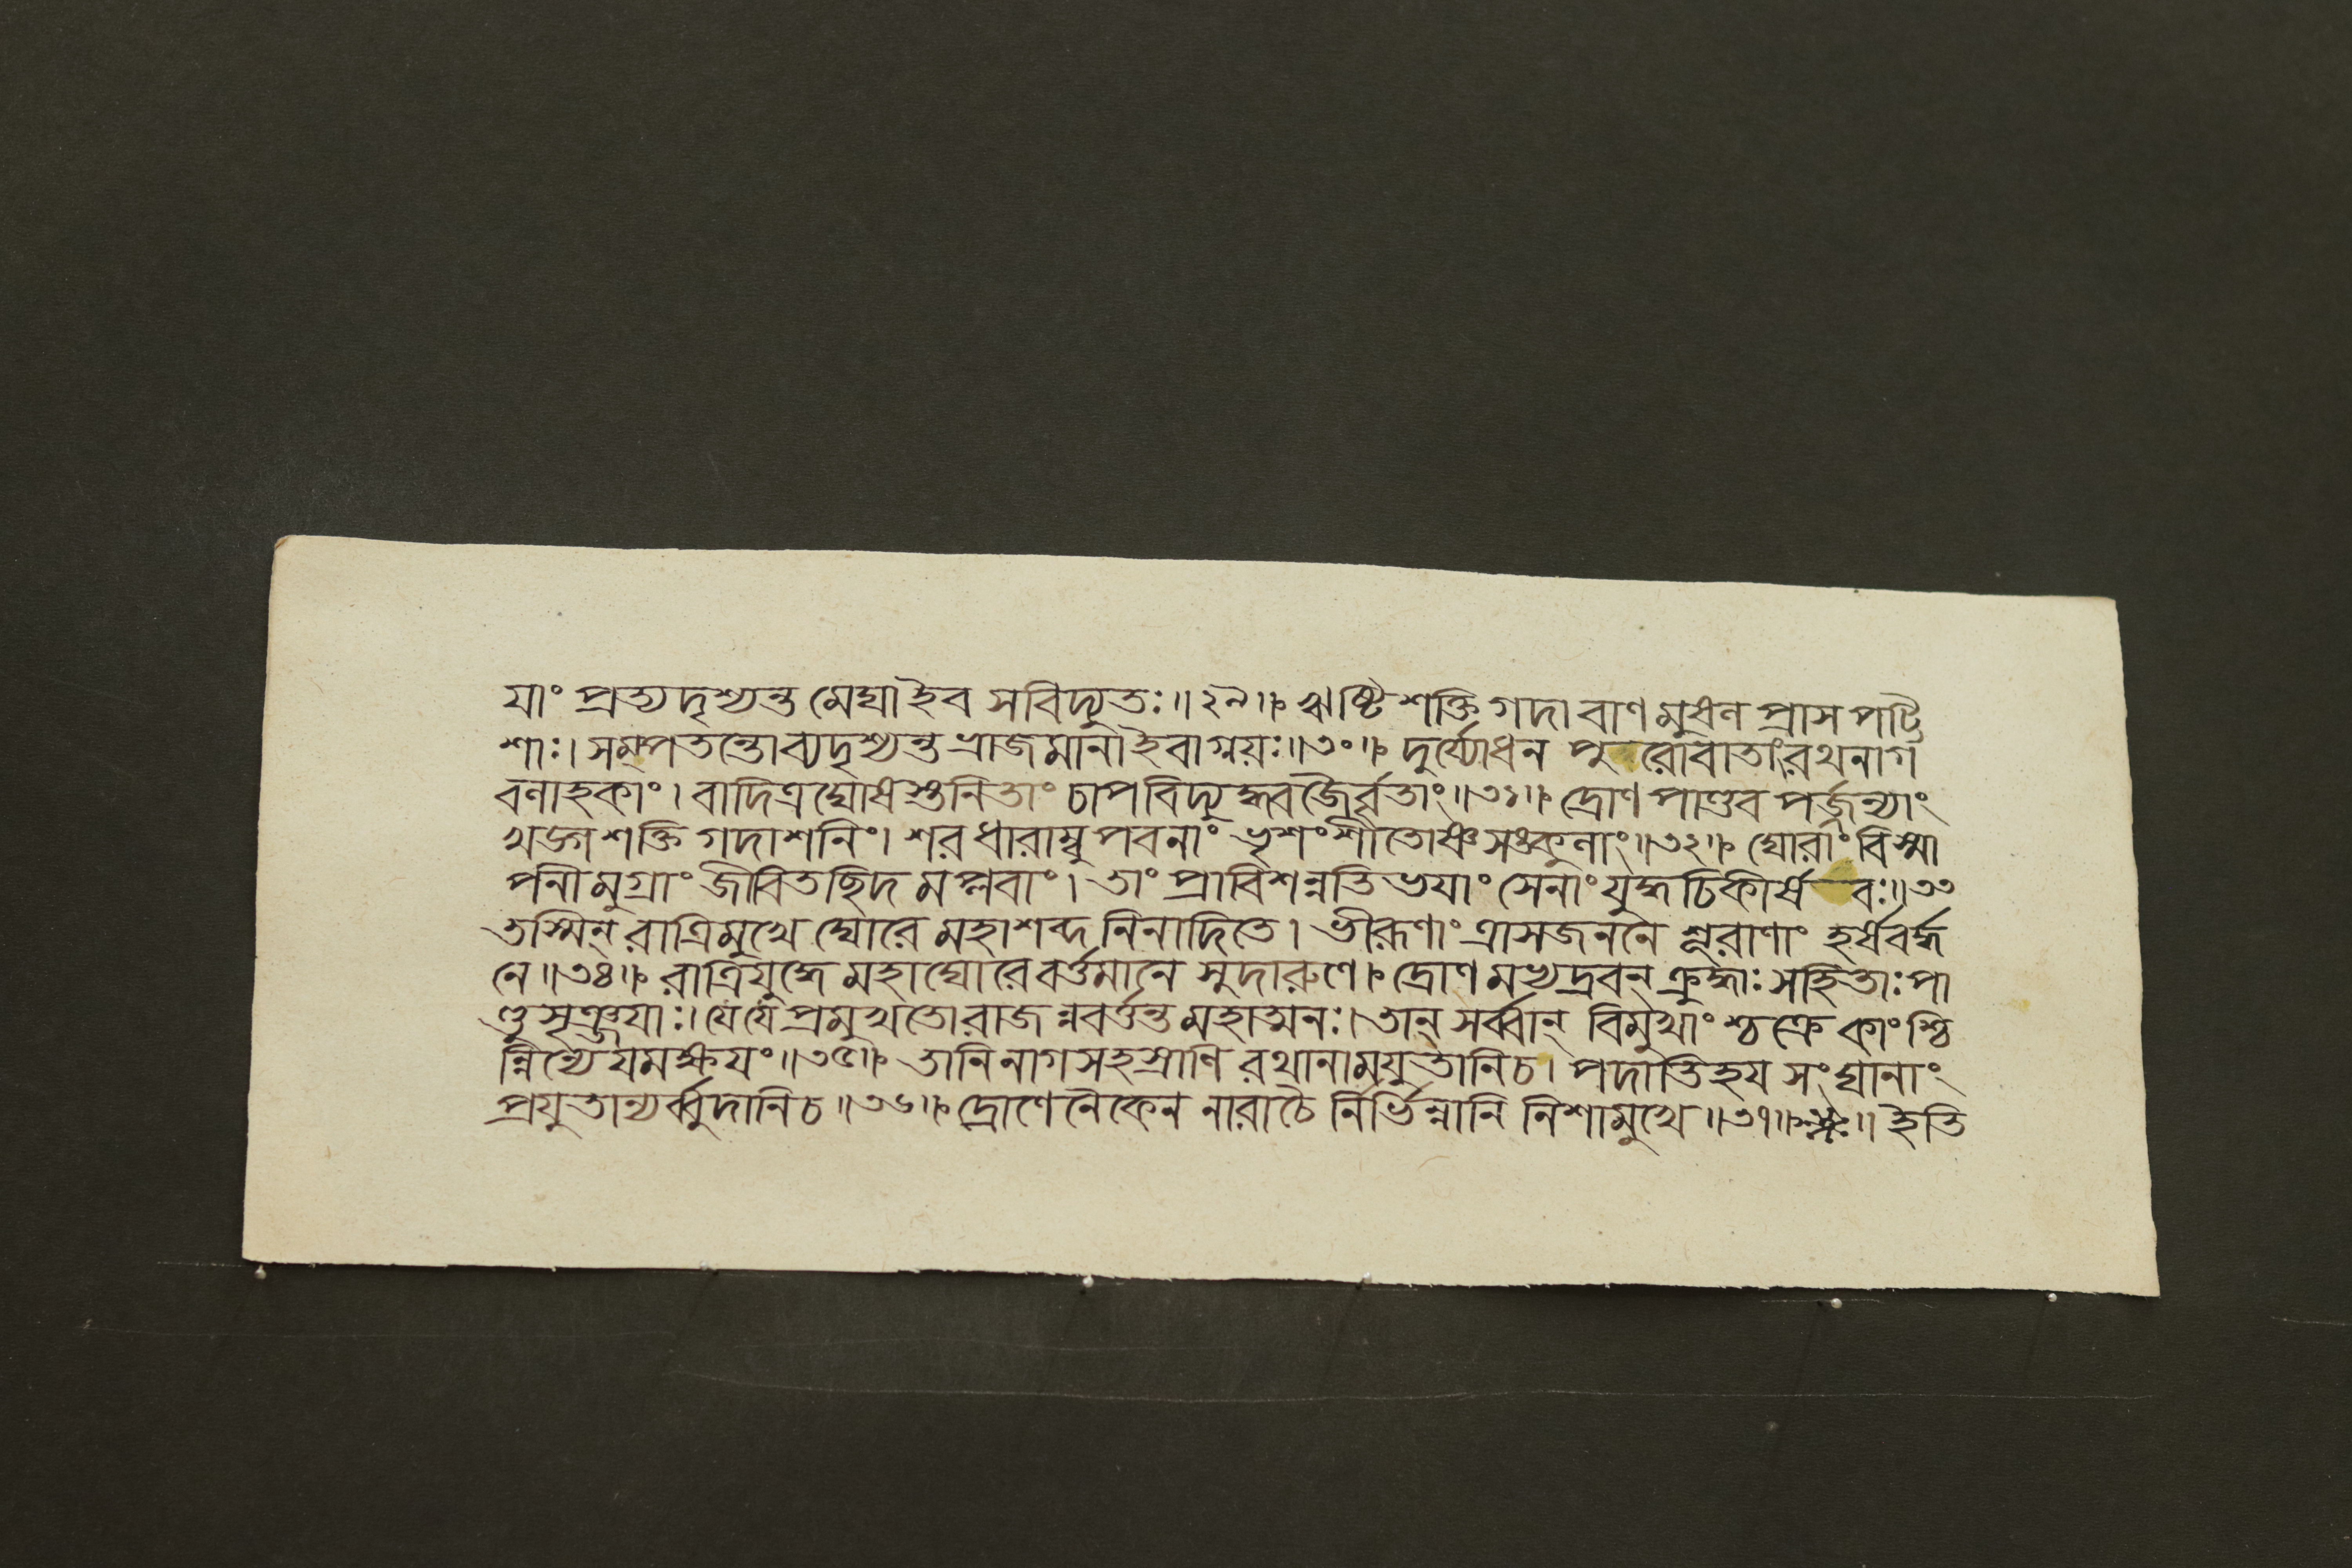 যাং প্রত্যদৃশ্যন্ত মেঘাইব সবিদ্যুতঃ॥২৯॥ ঋষ্টিশক্তি গদা বাণ মুষল প্রাস পট্টি
শাঃ। সম্পতন্তো ব্যদৃশ্যন্ত ভ্রাজমানা ইবাগ্নয়ঃ॥৩০॥ দুর্য্যোধন পুরোবাতাং রথনাগ
বলাহকাং। বাদিত্রঘোষস্তনিতাং চাপবিদ্যুদ্ধ্বজৈর্ব্বৃতাং॥৩১॥ দ্রোণ পাণ্ডব পর্জন্যাং
খড়্গ শক্তি গদাশনিং। শরধারাম্বু পবনাং ভৃশংশীতোষ্ণসঙ্কুলাং॥৩২॥ ঘোরাং বিস্মা
পনীমুগ্রাং জীবিতছিদমপ্লবাং। তাং প্রাবিশন্নতিভযাং সেনাং যুদ্ধচিকীর্ষবঃ॥৩৩
তস্মিন্ রাত্রিমুখে ঘোরে মহাশব্দনিনাদিতে। ভীরূণাং ত্রাসজননে শূরাণাং হর্ষবর্দ্ধ
নে॥৩৪॥ রাত্রিযুদ্ধে মহাঘোরে বর্ত্তমানে সুদারুণে। দ্রোণমভ্যদ্রবন্ ক্রুদ্ধাঃ সহিতাঃ পা
ণ্ডুসৃঞ্জযাঃ। যে যে প্রমুখতো রাজন্নবর্ত্তন্ত মহাত্মনঃ। তান্ সর্ব্বান্ বিমুখাং শ্চক্রে কাংশ্চি
ন্নিন্যে যমক্ষযং॥৩৫॥ তানি নাগসহস্রাণি রথানামযুতানিচ। পদাতিহয সংঘানাং
প্রযুতান্যর্ব্বুদানিচ॥৩৬॥ দ্রোণেনৈকেন নারাচৈ র্নির্ভিন্নানি নিশামুখে॥৩৭॥ ইতি